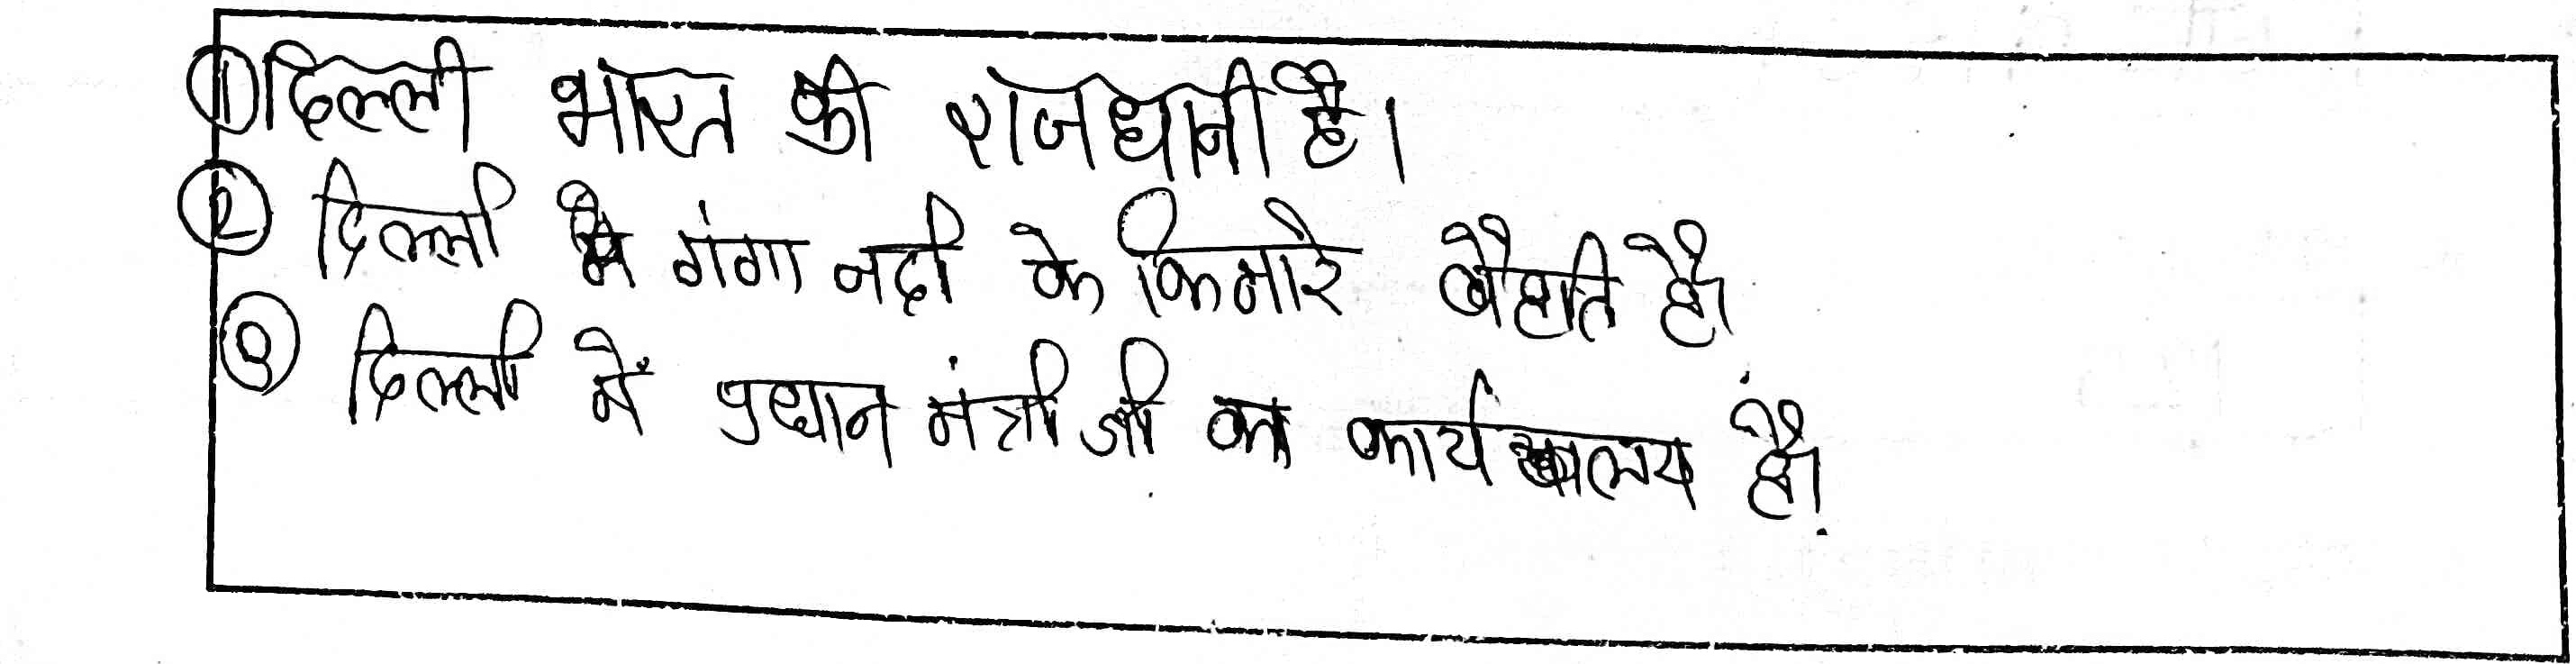 ① दिल्ली भारत की राजधानी है।
② दिल्ली मे गंगा नदी के किनारे बैहाति है।
③ दिल्ली में प्रधान मंत्री जी का कार्य लय है।